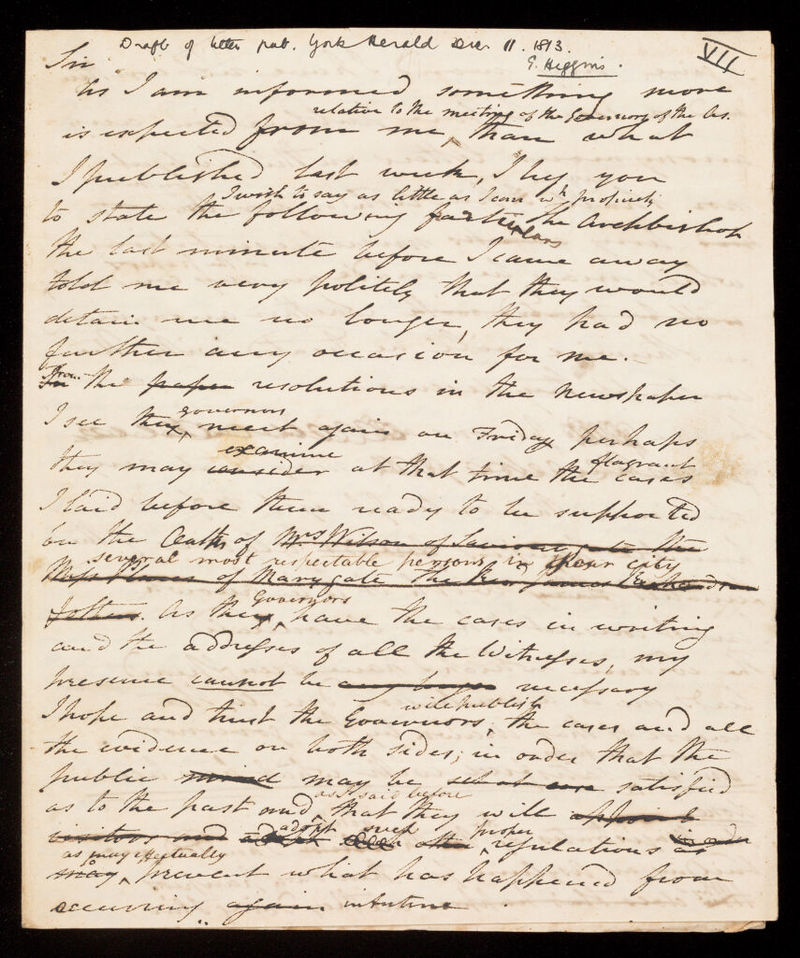 Draft of letter pub. York Herald Dec. 11. 1813.
G. Higgins.
VII
Sir
As I am informed something more
relative to the meeting of the Governors of the As.
is expected from me, than what
I published last week, I beg you
I wish to say as little as I can wh propriety
to state the following particulars the Archbishop
the last minute before I came away
told me very politely that they would
detain me no longer, they had no
further any occasion for me.
From
In the paper resolutions in the Newspaper
governors
I see they meet again on Friday perhaps
examine flagrant
they may consider at that time the cases
I laid before them ready to be supported
on the Oaths of Mrs Wilson of the
several most respectable persons in your city
Miss of Marygate the Revd James Richardson
Governors
As they have the cases in writing
and the addresses of all the Witnesses, my
presence cannot be any longer necessary
will publish
I hope and trust the Governors, the cases and all
the evidence on both sides; in order that the
public mind may be set at ease satisfied
as I said before
as to the past and that they will appoint
adopt such proper
visitors and adopt such other regulations as in order
as may effectually
may prevent what has happened from
occurring again in future.